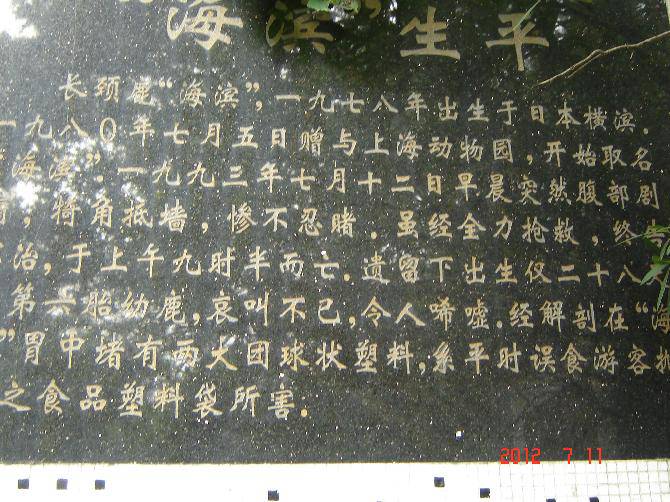 "海滨"生平
长颈鹿"海滨",一九七八年出生于日本横滨.
一九八0年七月五日赠与上海动物园,开始取名
海滨".一九九三年七月十二日早晨突然腹部剧
犄角抵墙,惨不忍睹.虽经全力抢救,终
治,于上午九时半而亡.遗留下出生仅二十八
第六胎幼鹿,哀叫不已,令人唏嘘.经解剖在"海
"胃中堵有两大团球状塑料,系平时误食游客
之食品塑料袋所害.
2012 7 11